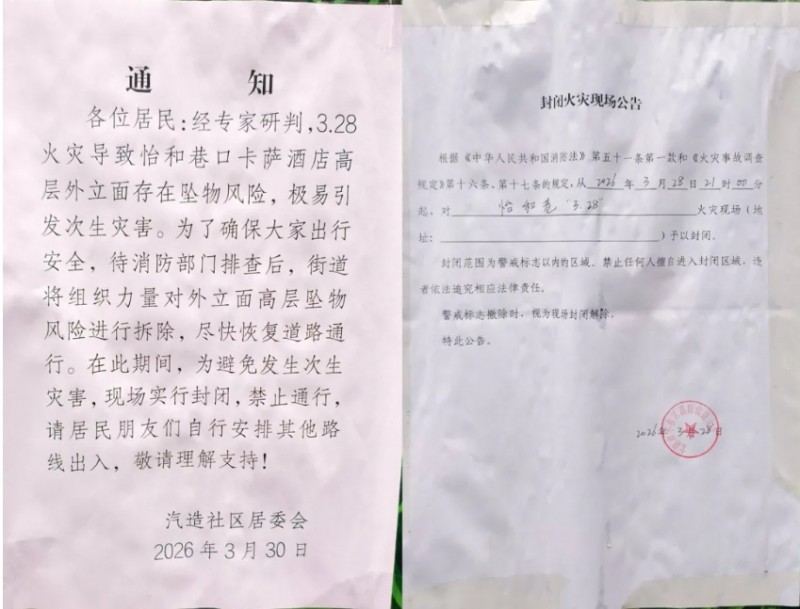 通 知
各位居民:经专家研判,3.28
火灾导致怡和巷口卡萨酒店高
层外立面存在坠物风险,极易引
发次生灾害。为了确保大家出行
安全,待消防部门排查后,街道
将组织力量对外立面高层坠物
风险进行拆除,尽快恢复道路通
行。在此期间,为避免发生次生
灾害,现场实行封闭,禁止通行,
请居民朋友们自行安排其他路
线出入,敬请理解支持!
汽造社区居委会
2026年3月30日
封闭火灾现场公告
根据《中华人民共和国消防法》第五十一条第一款和《火灾事故调查
规定》第十六条、第十七条的规定,从 2026 年 3 月 28 日 21 时 00 分
起,对 怡和巷"3.28" 火灾现场(地
址: )予以封闭。
封闭范围为警戒标志以内的区域。禁止任何人擅自进入封闭区域,违
者依法追究相应法律责任。
警戒标志撤除时,视为现场封闭解除。
特此公告。
2026年3月28日